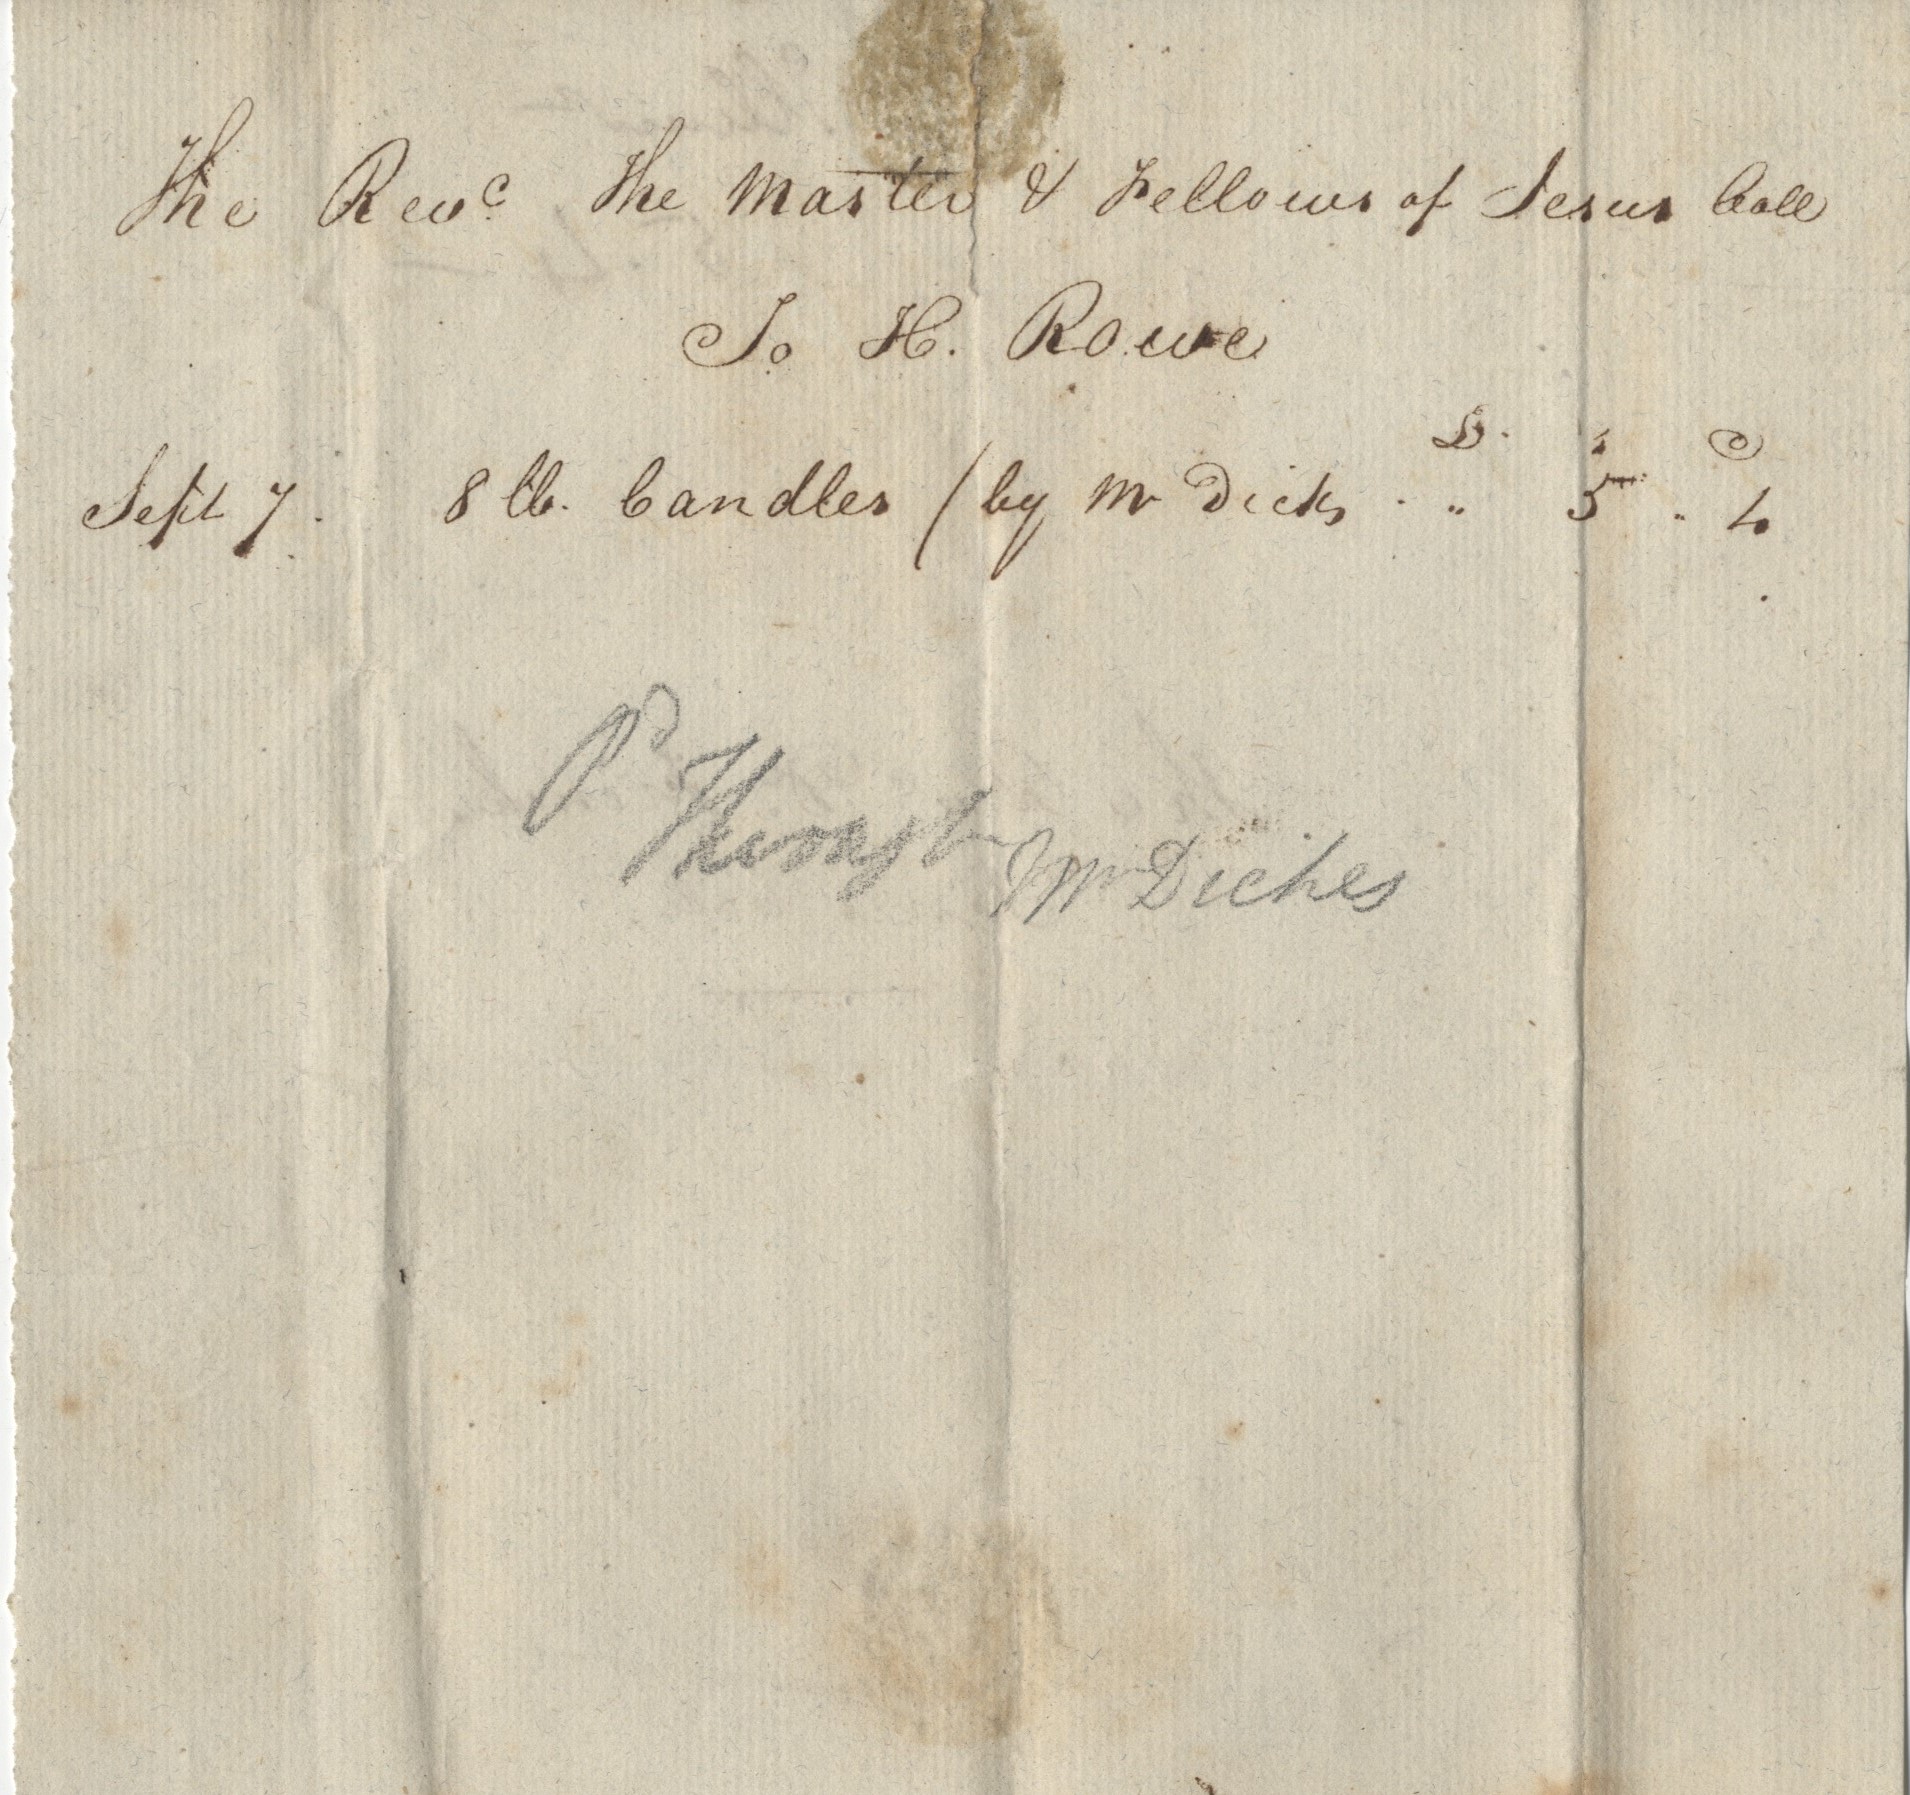 The Revd. The Master & Fellows of Jesus Coll
To H. Rowe
£ s d
Sept 7. 8 lb. Candles / by Mr Dicks . " 5 " 4
Pd Through Mr Dickes